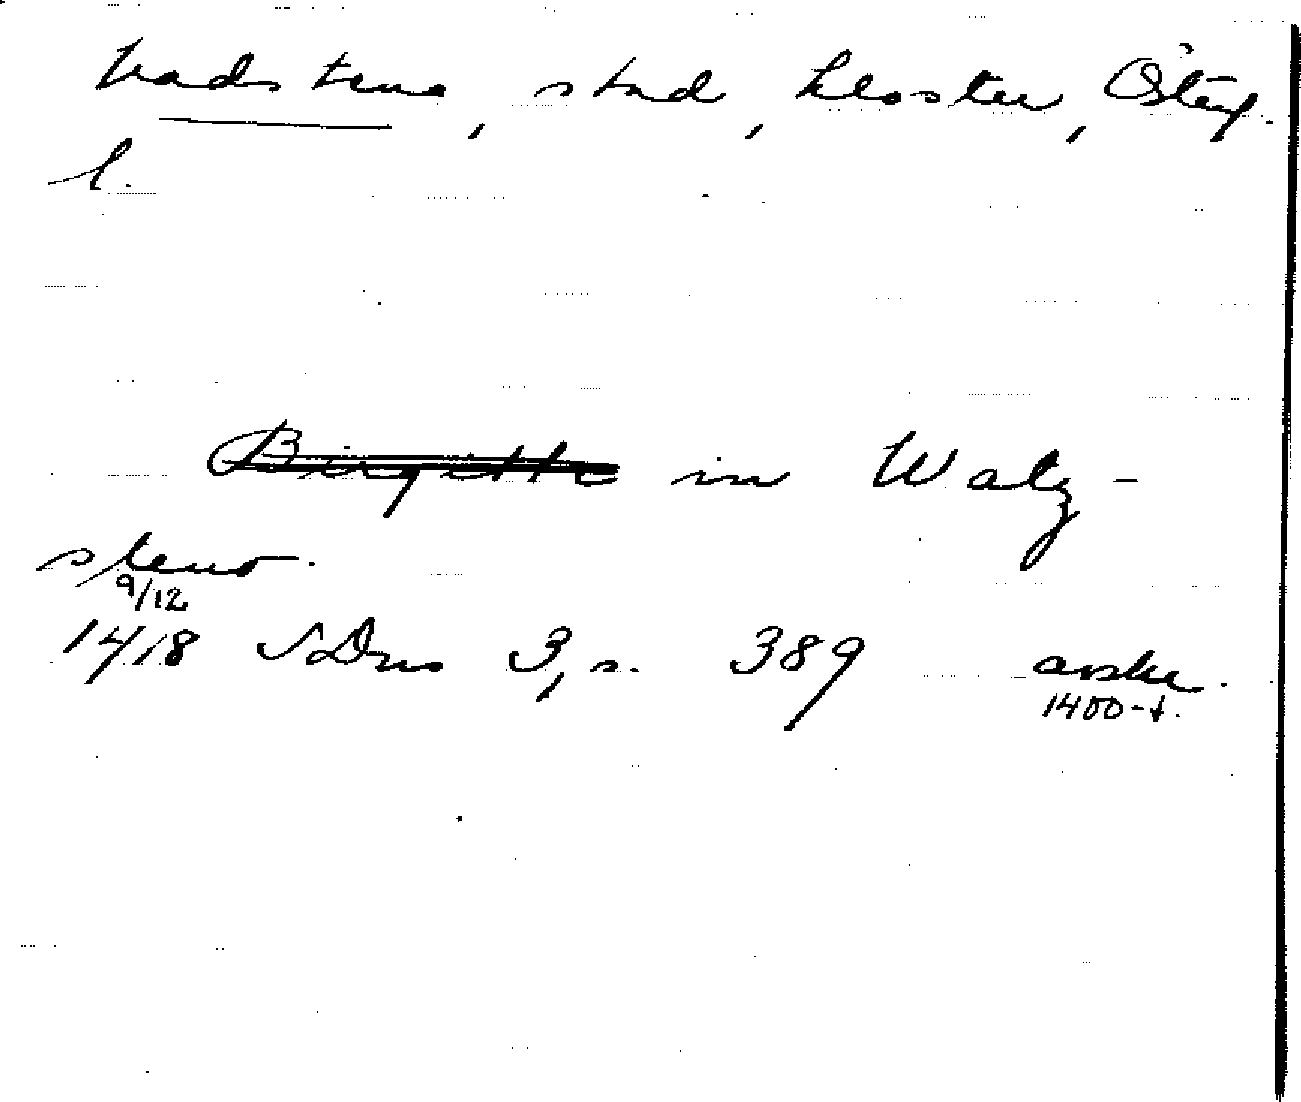 Vadstena, stad, kloster, Östergl.
l.
Birgitte in Watz-
steno.
9/12
1418 SDns 3, s. 389 avskr.
1400-t.